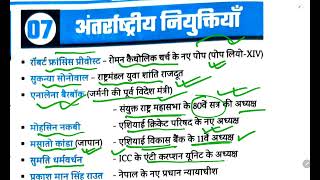 07 अंतर्राष्ट्रीय नियुक्तियाँ
रॉबर्ट फ्रांसिस प्रीवोस्ट - रोमन कैथोलिक चर्च के नए पोप (पोप लियो-XIV)
सुकन्या सोनोवाल - राष्ट्रमंडल युवा शांति राजदूत
एनालेना बैरबॉक (जर्मनी की पूर्व विदेश मंत्री)
- संयुक्त राष्ट्र महासभा के 80वें सत्र की अध्यक्ष
मोहसिन नकवी - एशियाई क्रिकेट परिषद के नए अध्यक्ष
मसातो कांडा (जापान) - एशियाई विकास बैंक के 11वें अध्यक्ष
सुमति धर्मवर्धन - ICC के एंटी करप्शन यूनिट के अध्यक्ष
प्रकाश मान सिंह राउत - नेपाल के नए प्रधान न्यायाधीश